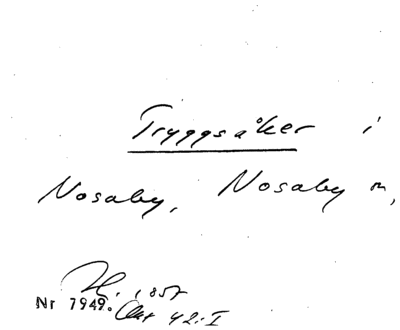 Tryggsåker i
Nosaby, Nosaby sn,
1857
Nr 7949. Akt 42:I